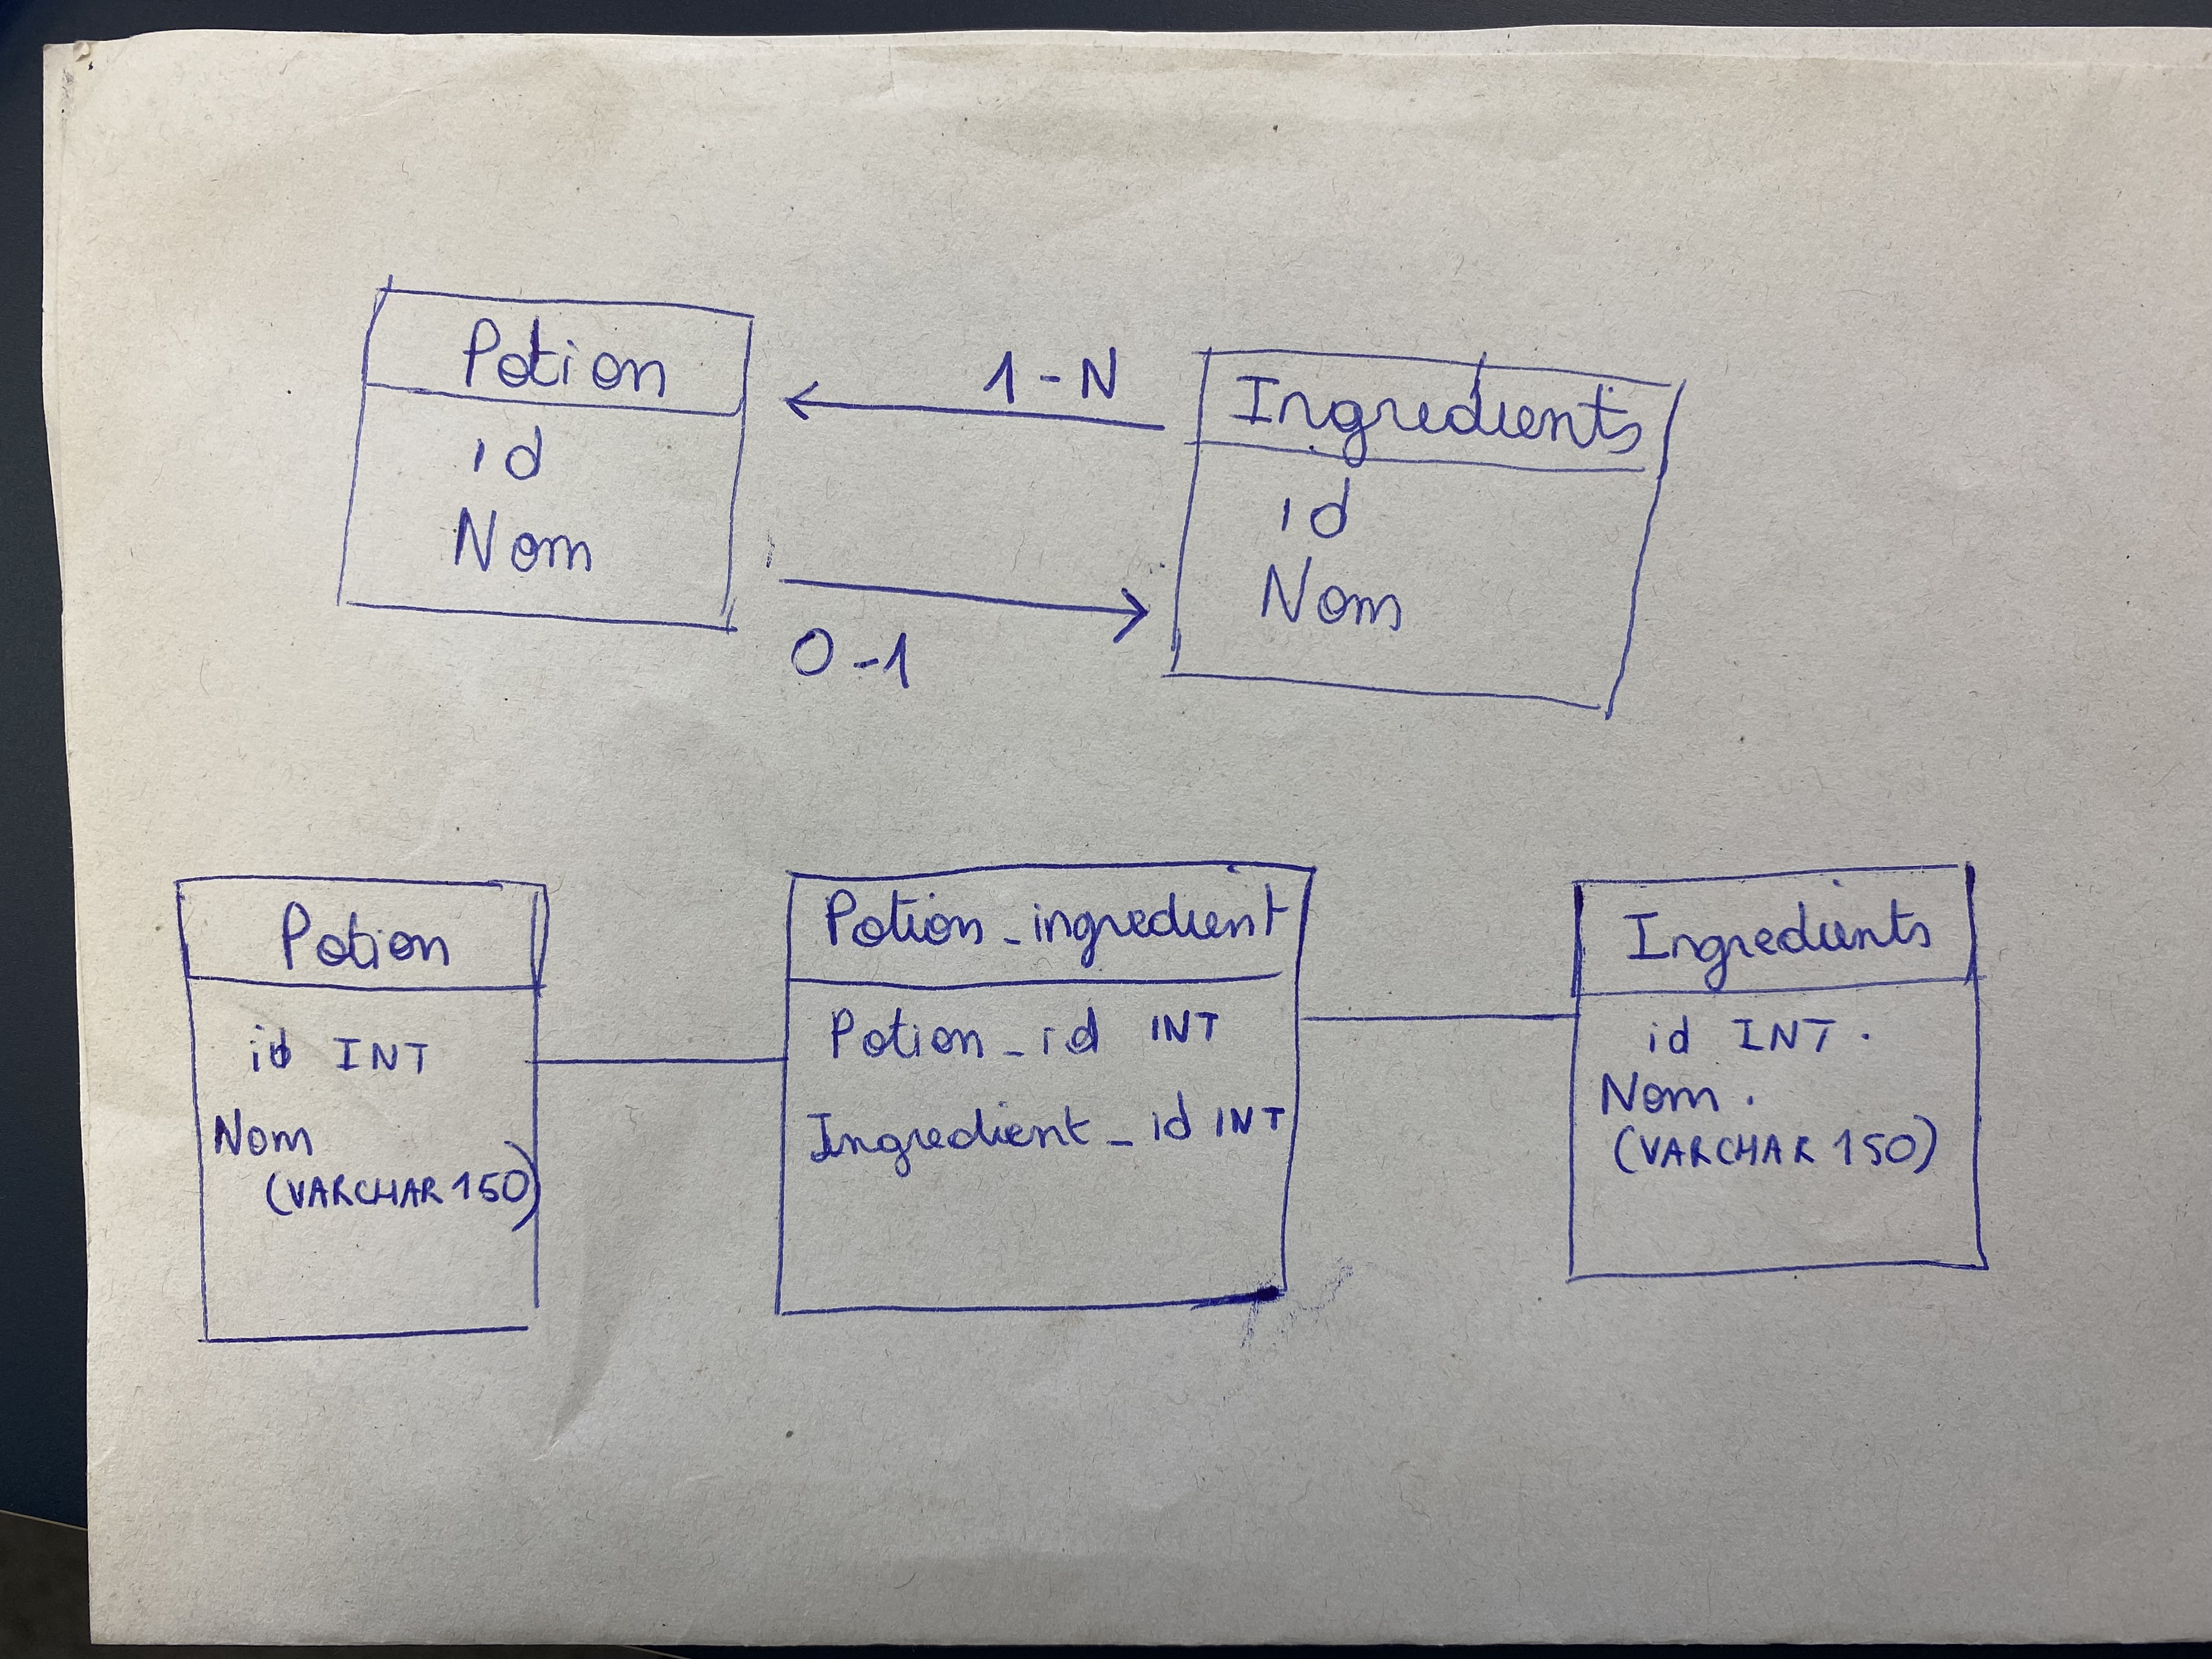 Potion
id
Nom
1-N
0-1
Ingredients
id
Nom
Potion
id INT
Nom
(VARCHAR 150)
Potion_ingredient
Potion_id INT
Ingredient_id INT
Ingredients
id INT.
Nom.
(VARCHAR 150)